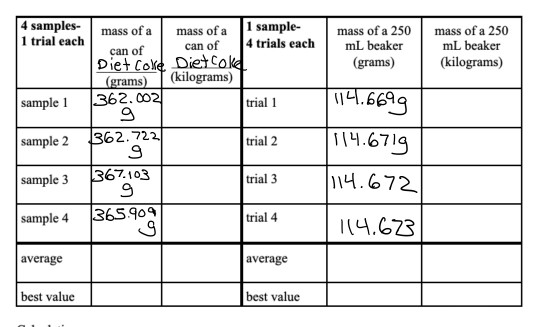 4 samples-
1 trial each
mass of a
can of
Diet Coke
(grams)
mass of a
can of
Diet Coke
(kilograms)
1 sample-
4 trials each
mass of a 250
mL beaker
(grams)
mass of a 250
mL beaker
(kilograms)
sample 1
362.002
g
trial 1
114.669g
sample 2
362.722
g
trial 2
114.671g
sample 3
367.103
g
trial 3
114.672
sample 4
365.909
g
trial 4
114.673
average
average
best value
best value